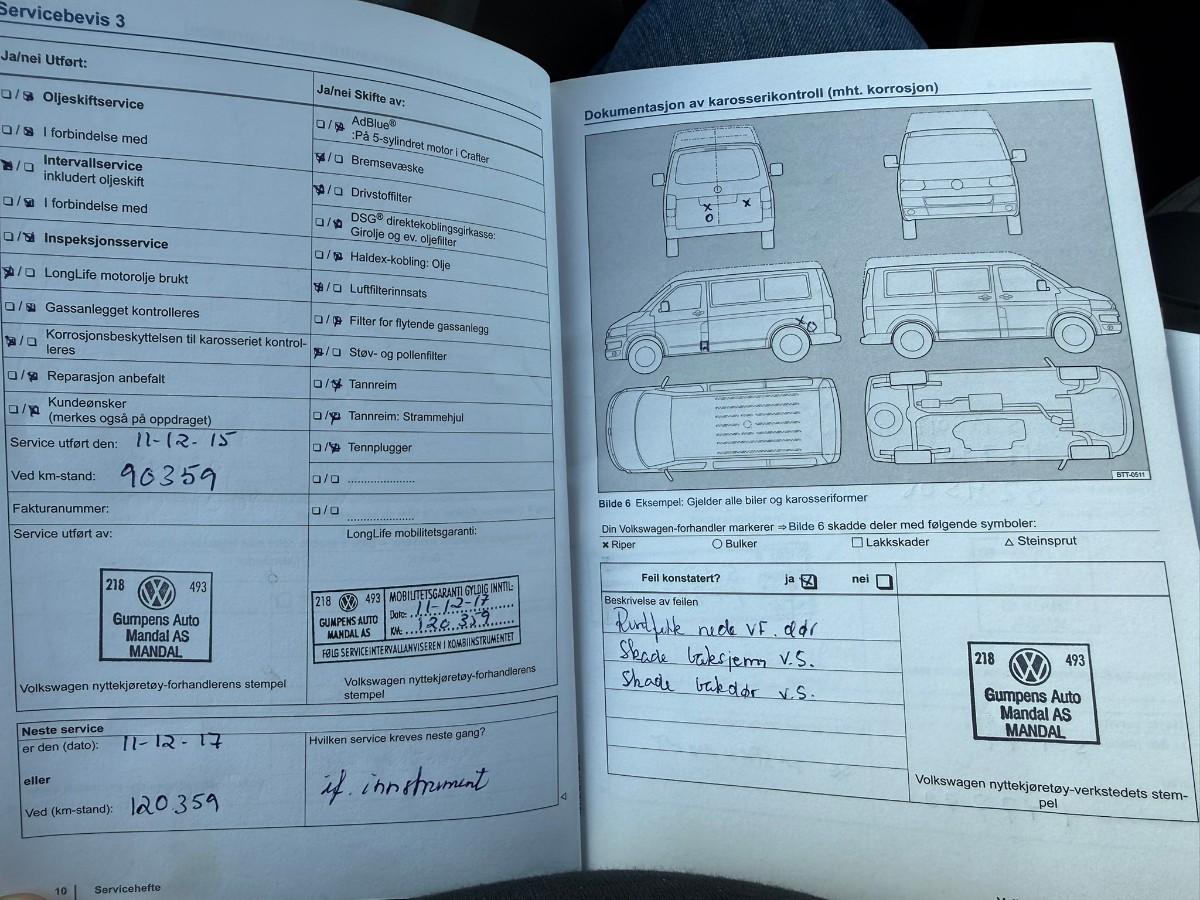 Servicebevis 3
Ja/nei Utført:
☐ / ☒ Oljeskiftservice
☐ / ☒ I forbindelse med
☒ / ☐ Intervallservice
inkludert oljeskift
☐ / ☒ I forbindelse med
☐ / ☒ Inspeksjonsservice
☒ / ☐ LongLife motorolje brukt
☐ / ☒ Gassanlegget kontrolleres
☒ / ☐ Korrosjonsbeskyttelsen til karosseriet kontrol-
leres
☐ / ☒ Reparasjon anbefalt
☐ / ☒ Kundeønsker
(merkes også på oppdraget)
Service utført den: 11-12-15
Ved km-stand: 90359
Fakturanummer:
Service utført av:
218 493
Gumpens Auto
Mandal AS
MANDAL
Volkswagen nyttekjøretøy-forhandlerens stempel
Ja/nei Skifte av:
☐ / ☒ AdBlue®
:På 5-sylindret motor i Crafter
☒ / ☐ Bremsevæske
☒ / ☐ Drivstoffilter
☐ / ☒ DSG® direktekoblingsgirkasse:
Girolje og ev. oljefilter
☐ / ☒ Haldex-kobling: Olje
☒ / ☐ Luftfilterinnsats
☐ / ☒ Filter for flytende gassanlegg
☒ / ☐ Støv- og pollenfilter
☐ / ☒ Tannreim
☐ / ☒ Tannreim: Strammehjul
☐ / ☒ Tennplugger
☐ / ☐ ....................
☐ / ☐ ....................
LongLife mobilitetsgaranti:
218 493 MOBILITETSGARANTI GYLDIG INNTIL:
Dato: 11-12-17
GUMPENS AUTO
MANDAL AS
KM: 120.359
FØLG SERVICEINTERVALLANVISEREN I KOMBIINSTRUMENTET
Volkswagen nyttekjøretøy-forhandlerens
stempel
Neste service
er den (dato): 11-12-17
eller
Ved (km-stand): 120359
Hvilken service kreves neste gang?
if. innstrument
10 | Servicehefte
Dokumentasjon av karosserikontroll (mht. korrosjon)
BTT-0511
Bilde 6 Eksempel: Gjelder alle biler og karosseriformer
Din Volkswagen-forhandler markerer ⇒ Bilde 6 skadde deler med følgende symboler:
× Riper ○ Bulker □ Lakkskader △ Steinsprut
Feil konstatert? ja ☒ nei ☐
Beskrivelse av feilen
Rundfekk nede VF. dør
Skade bakskjerm v.s.
Skade bakdør v.s.
218 493
Gumpens Auto
Mandal AS
MANDAL
Volkswagen nyttekjøretøy-verkstedets stem-
pel